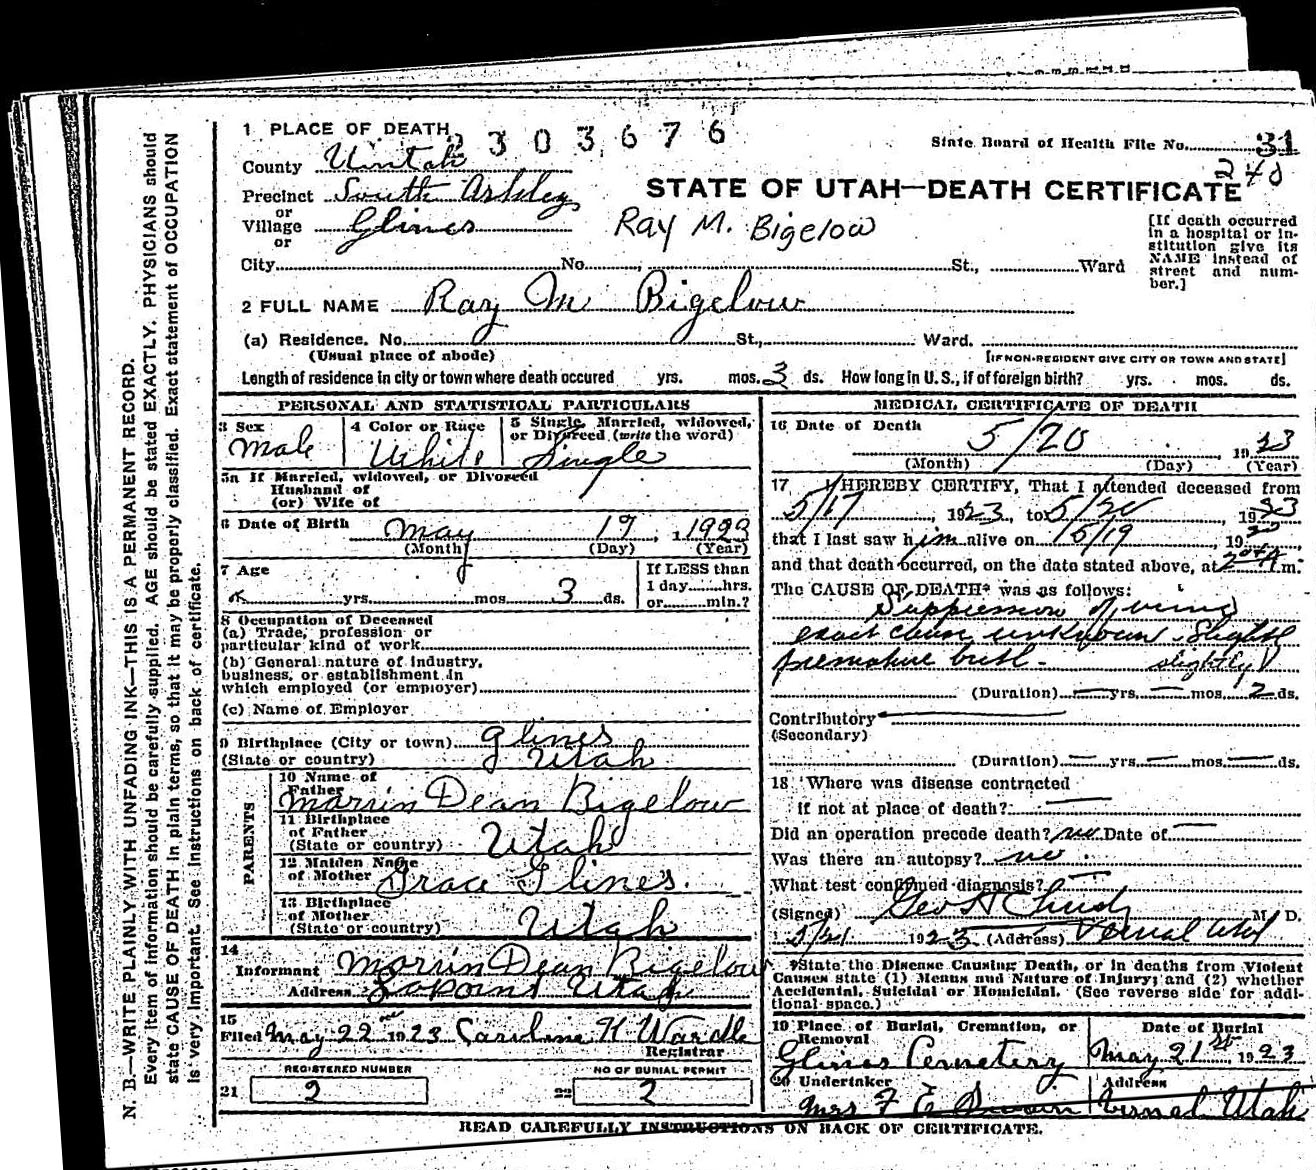 N. B.—WRITE PLAINLY WITH UNFADING INK—THIS IS A PERMANENT RECORD.
Every item of information should be carefully supplied. AGE should be stated EXACTLY. PHYSICIANS should
state CAUSE OF DEATH in plain terms, so that it may be properly classified. Exact statement of OCCUPATION
is very important. See instructions on back of certificate.
1 PLACE OF DEATH 2303676
State Board of Health File No. 31
240
County Uintah
Precinct South Ashley
STATE OF UTAH—DEATH CERTIFICATE
or
Village Glines
or
Ray M. Bigelow
[If death occurred
in a hospital or in-
stitution give its
NAME instead of
street and num-
ber.]
City No. St., Ward
2 FULL NAME Ray M Bigelow
(a) Residence. No. St., Ward.
(Usual place of abode) [IF NON-RESIDENT GIVE CITY OR TOWN AND STATE]
Length of residence in city or town where death occured yrs. mos. 3 ds. How long in U. S., if of foreign birth? yrs. mos. ds.
PERSONAL AND STATISTICAL PARTICULARS
3 Sex
Male
4 Color or Race
White
5 Single, Married, widowed,
or Divorced (write the word)
Single
5a If Married, widowed, or Divorced
Husband of
(or) Wife of
6 Date of Birth May 17, 1923
(Month) (Day) (Year)
7 Age
yrs. mos. 3 ds.
If LESS than
1 day hrs.
or min.?
8 Occupation of Deceased
(a) Trade, profession or
particular kind of work
(b) General nature of Industry,
business, or establishment in
which employed (or employer)
(c) Name of Employer
9 Birthplace (City or town) Glines
(State or country) Utah
PARENTS
10 Name of
Father
Marvin Dean Bigelow
11 Birthplace
of Father
(State or country) Utah
12 Maiden Name
of Mother Grace Glines.
13 Birthplace
of Mother
(State or country) Utah
14
Informant Marvin Dean Bigelow
Address Lapoint Utah
15
Filed May 22 1923 Caroline H Wardle
Registrar
REGISTERED NUMBER
21 2
NO OF BURIAL PERMIT
22 2
MEDICAL CERTIFICATE OF DEATH
16 Date of Death 5/20 1923
(Month) (Day) (Year)
17 I HEREBY CERTIFY, That I attended deceased from
5/17, 1923, to 5/20, 1923
that I last saw him alive on 5/19, 19
and that death occurred, on the date stated above, at 2 A m.
The CAUSE OF DEATH* was as follows:
Suppression of urine
exact cause unknown. Slightly
premature birth. slightly
(Duration) — yrs. — mos. 2 ds.
Contributory
(Secondary)
(Duration) — yrs. — mos. — ds.
18 Where was disease contracted
if not at place of death? —
Did an operation precede death? no Date of —
Was there an autopsy? no
What test confirmed diagnosis? —
(Signed) Geo H M. D.
5/21 1923 (Address) Vernal Utah
*State the Disease Causing Death, or in deaths from Violent
Causes state (1) Means and Nature of Injury; and (2) whether
Accidental, Suicidal or Homicidal. (See reverse side for addi-
tional space.)
19 Place of Burial, Cremation, or
Removal
Glines Cemetery
Date of Burial
May 21st 1923
20 Undertaker
Mrs F E Swain
Address
Vernal Utah
READ CAREFULLY INSTRUCTIONS ON BACK OF CERTIFICATE.